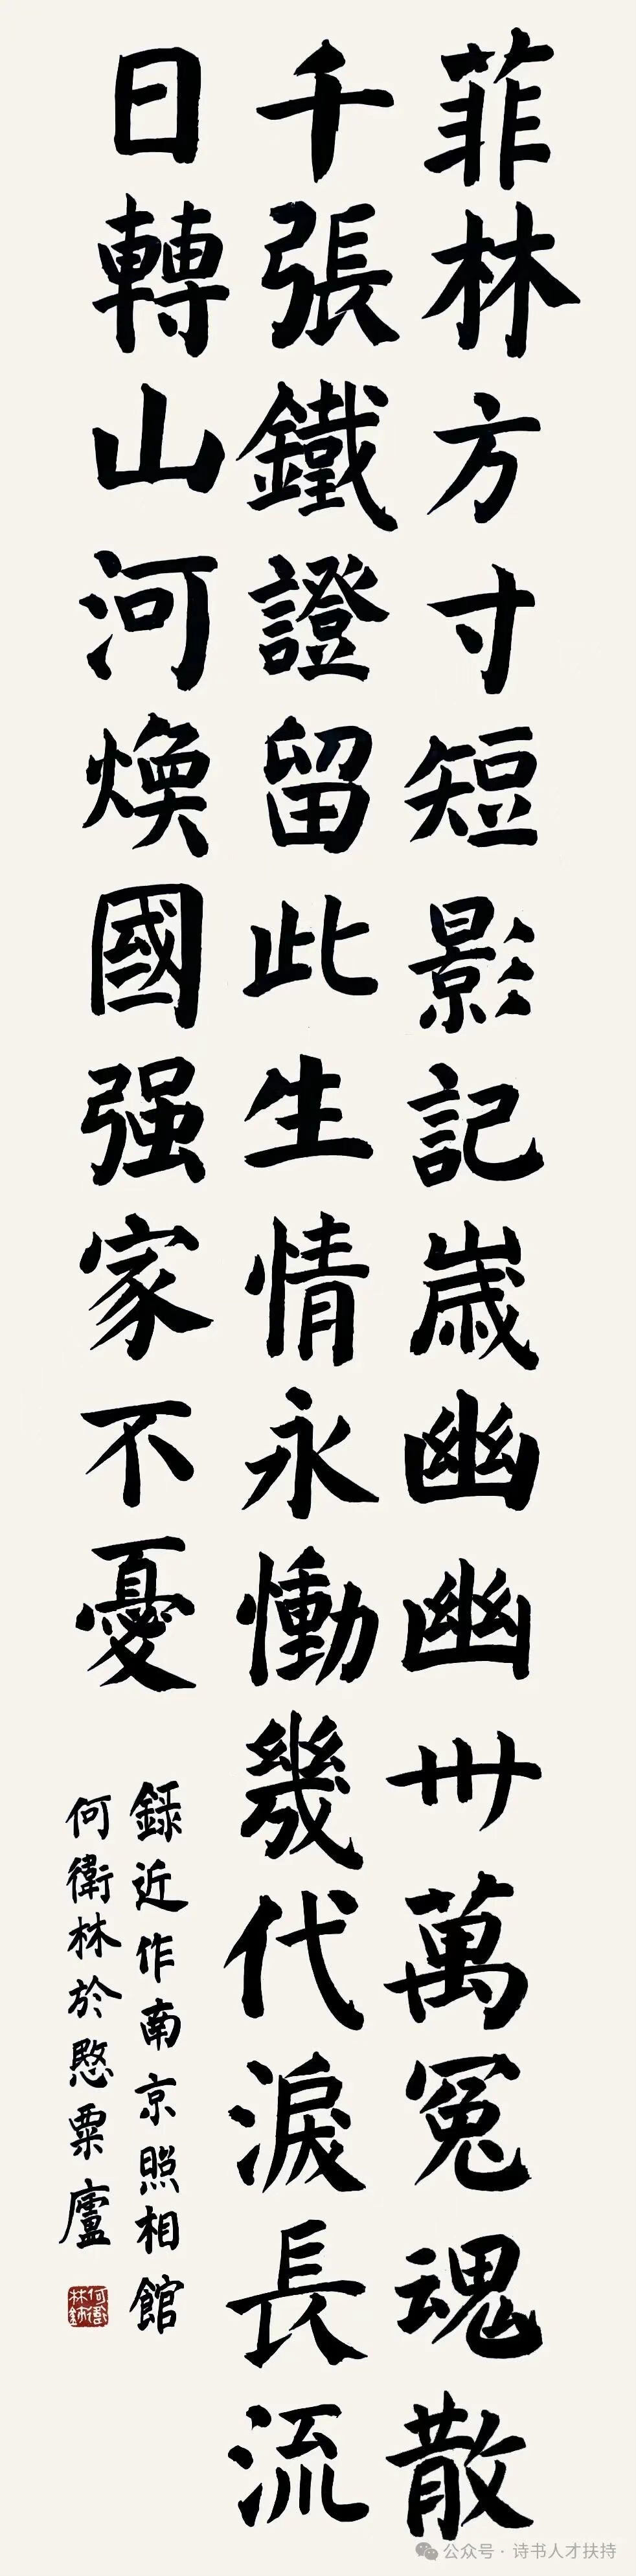 菲林方寸短影記歲幽幽卅萬冤魂散
千張鐵證留此生情永慟幾代淚長流
日轉山河焕國强家不憂
録近作南京照相館
何衛林於愍粟廬
公众号·诗书人才扶持